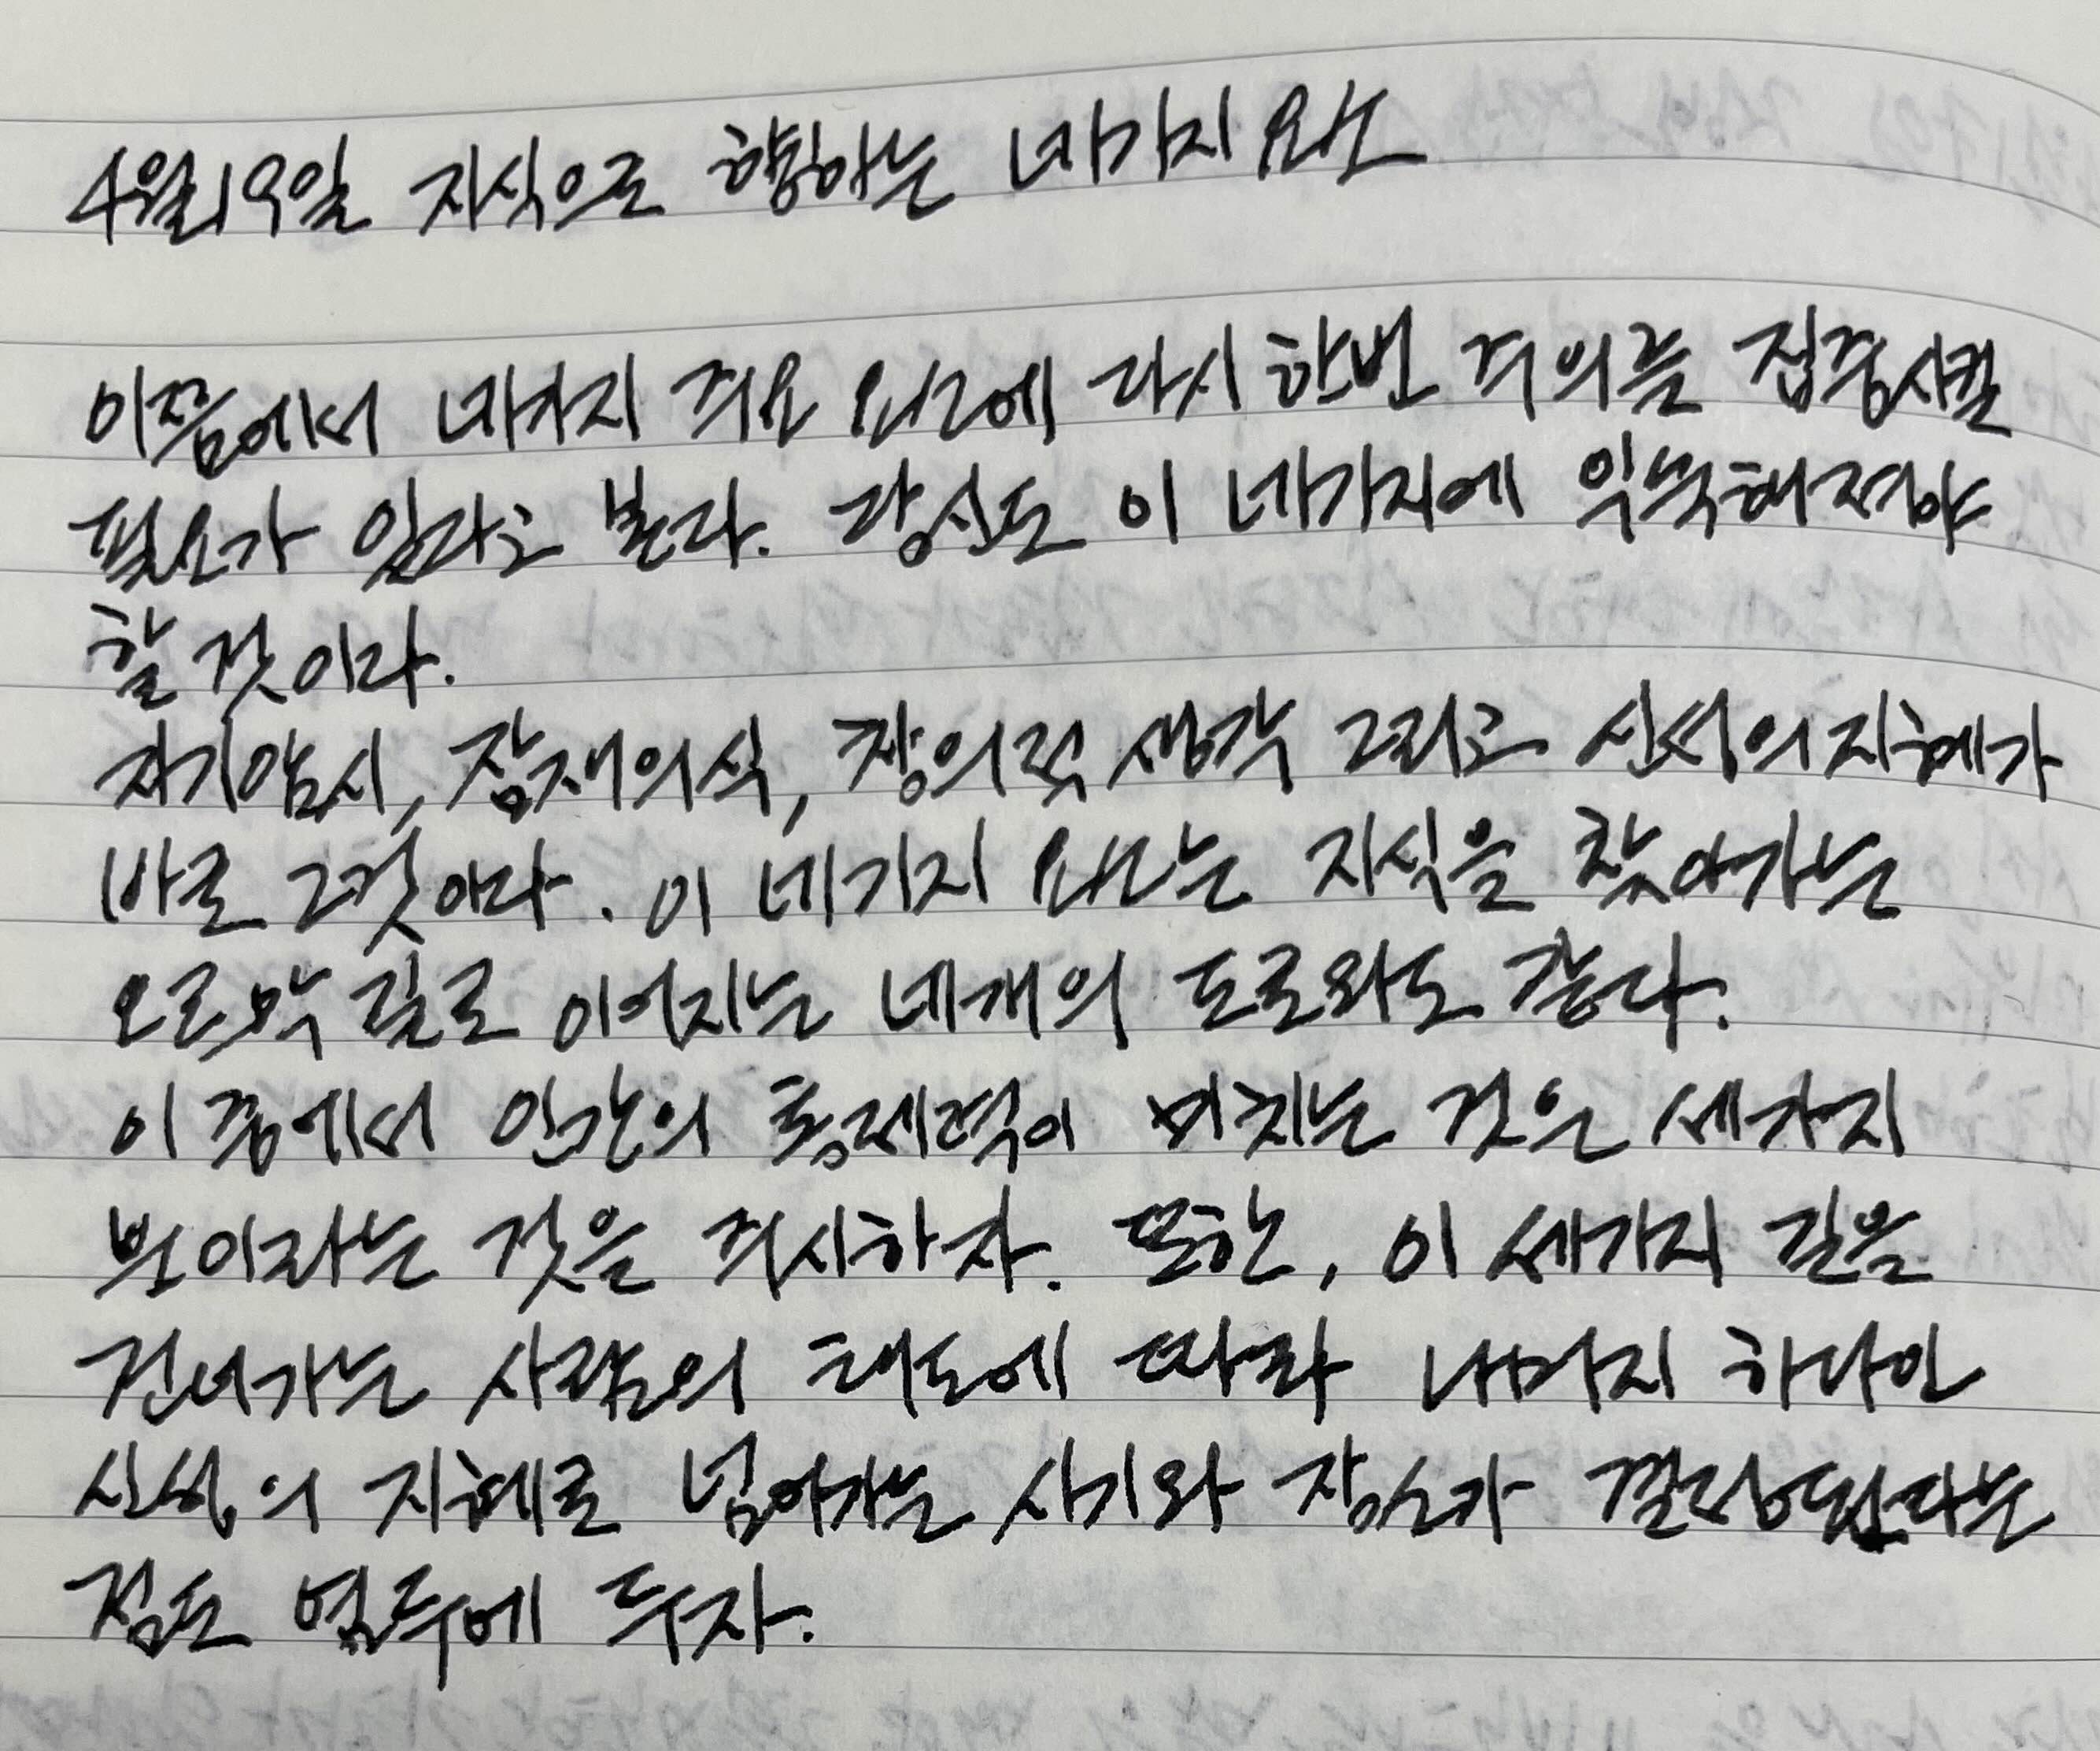 4월19일 지식으로 향하는 네가지 요소
이쯤에서 네가지 주요 요소에 다시 한번 주의를 집중시킬
필요가 있다고 본다. 당신도 이 네가지에 익숙해져야
할 것이다.
자기암시, 잠재의식, 창의적 생각 그리고 신성의 지혜가
바로 그것이다. 이 네가지 요소는 지식을 찾아가는
오르막 길로 이어지는 네개의 도로와도 같다.
이 중에서 인간의 통제력이 미치는 것은 세가지
뿐이라는 것을 주시하자. 또한, 이 세가지 길을
건너가는 사람의 태도에 따라 나머지 하나인
신성의 지혜로 넘어가는 시기와 장소가 결정된다는
점도 염두에 두자.